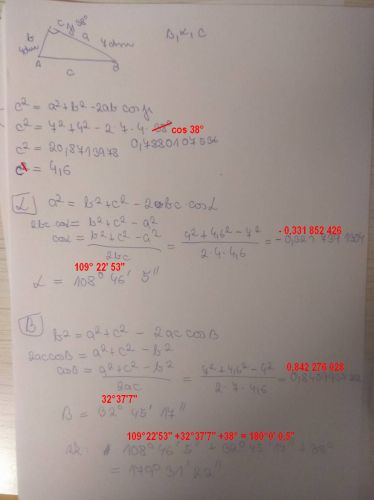 C γ 38°
b a
4dm 7dm
A c B
β, α, c
c² = a² + b² - 2ab cos γ
c² = 7² + 4² - 2·7·4· 38° cos 38°
c² = 20,8713978 0,7880107536
c = 4,6
α a² = b² + c² - 2bc·cos α
2bc cos α = b² + c² - a²
cos α = b² + c² - a² / 2bc = 4² + 4,6² - 7² / 2·4·4,6 = - 0,331 852 426
109° 22' 53"
α = 108° 46' 5"
β
b² = a² + c² - 2ac cos β
2ac cos β = a² + c² - b²
cos β = a² + c² - b² / 2ac = 7² + 4,6² - 4² / 2·7·4,6 = 0,842 276 028
32°37'7"
β = 32° 45' 17"
109°22'53" +32°37'7" +38° = 180°0' 0,5"
108° 46' 5" + 32° 45' 17" + 38°
= 179° 31' 22"